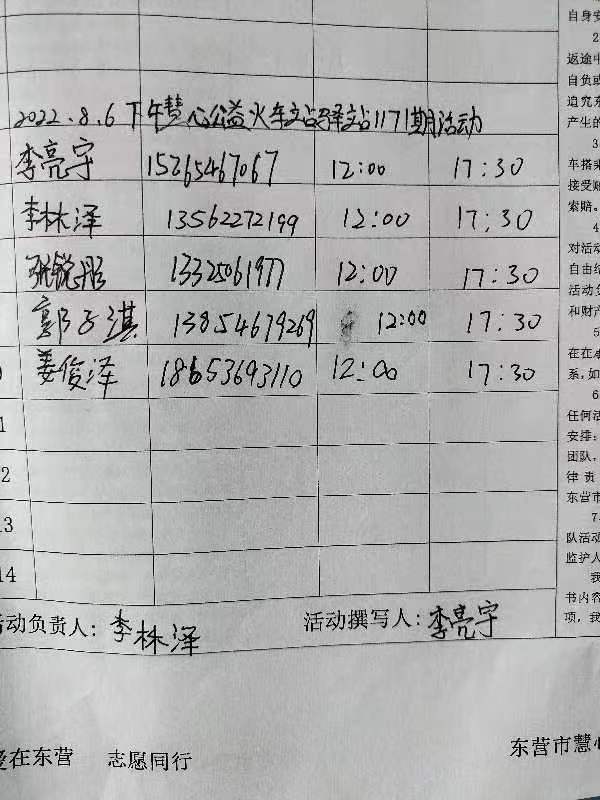 2022.8.6下午慧心公益火车站驿站1171期活动
李亮宇 15265467067 12:00 17:30
李林泽 13562272199 12:00 17:30
张锐彤 13325061977 12:00 17:30
郭子淇 13854679269 12:00 17:30
姜俊泽 18653693110 12:00 17:30
12
13
14
活动负责人: 李林泽 活动撰写人: 李亮宇
爱在东营 志愿同行 东营市慧心
自身安
2
返途中
自负或
追究东
产生的
3
车搭乘
接受赔
索赔。
4
对活动
自由结
活动负
和财产
5
在在本
系,如
6
任何活
安排;
团队,
律责
东营市
7.
队活动
监护人
我
书内容
项,我